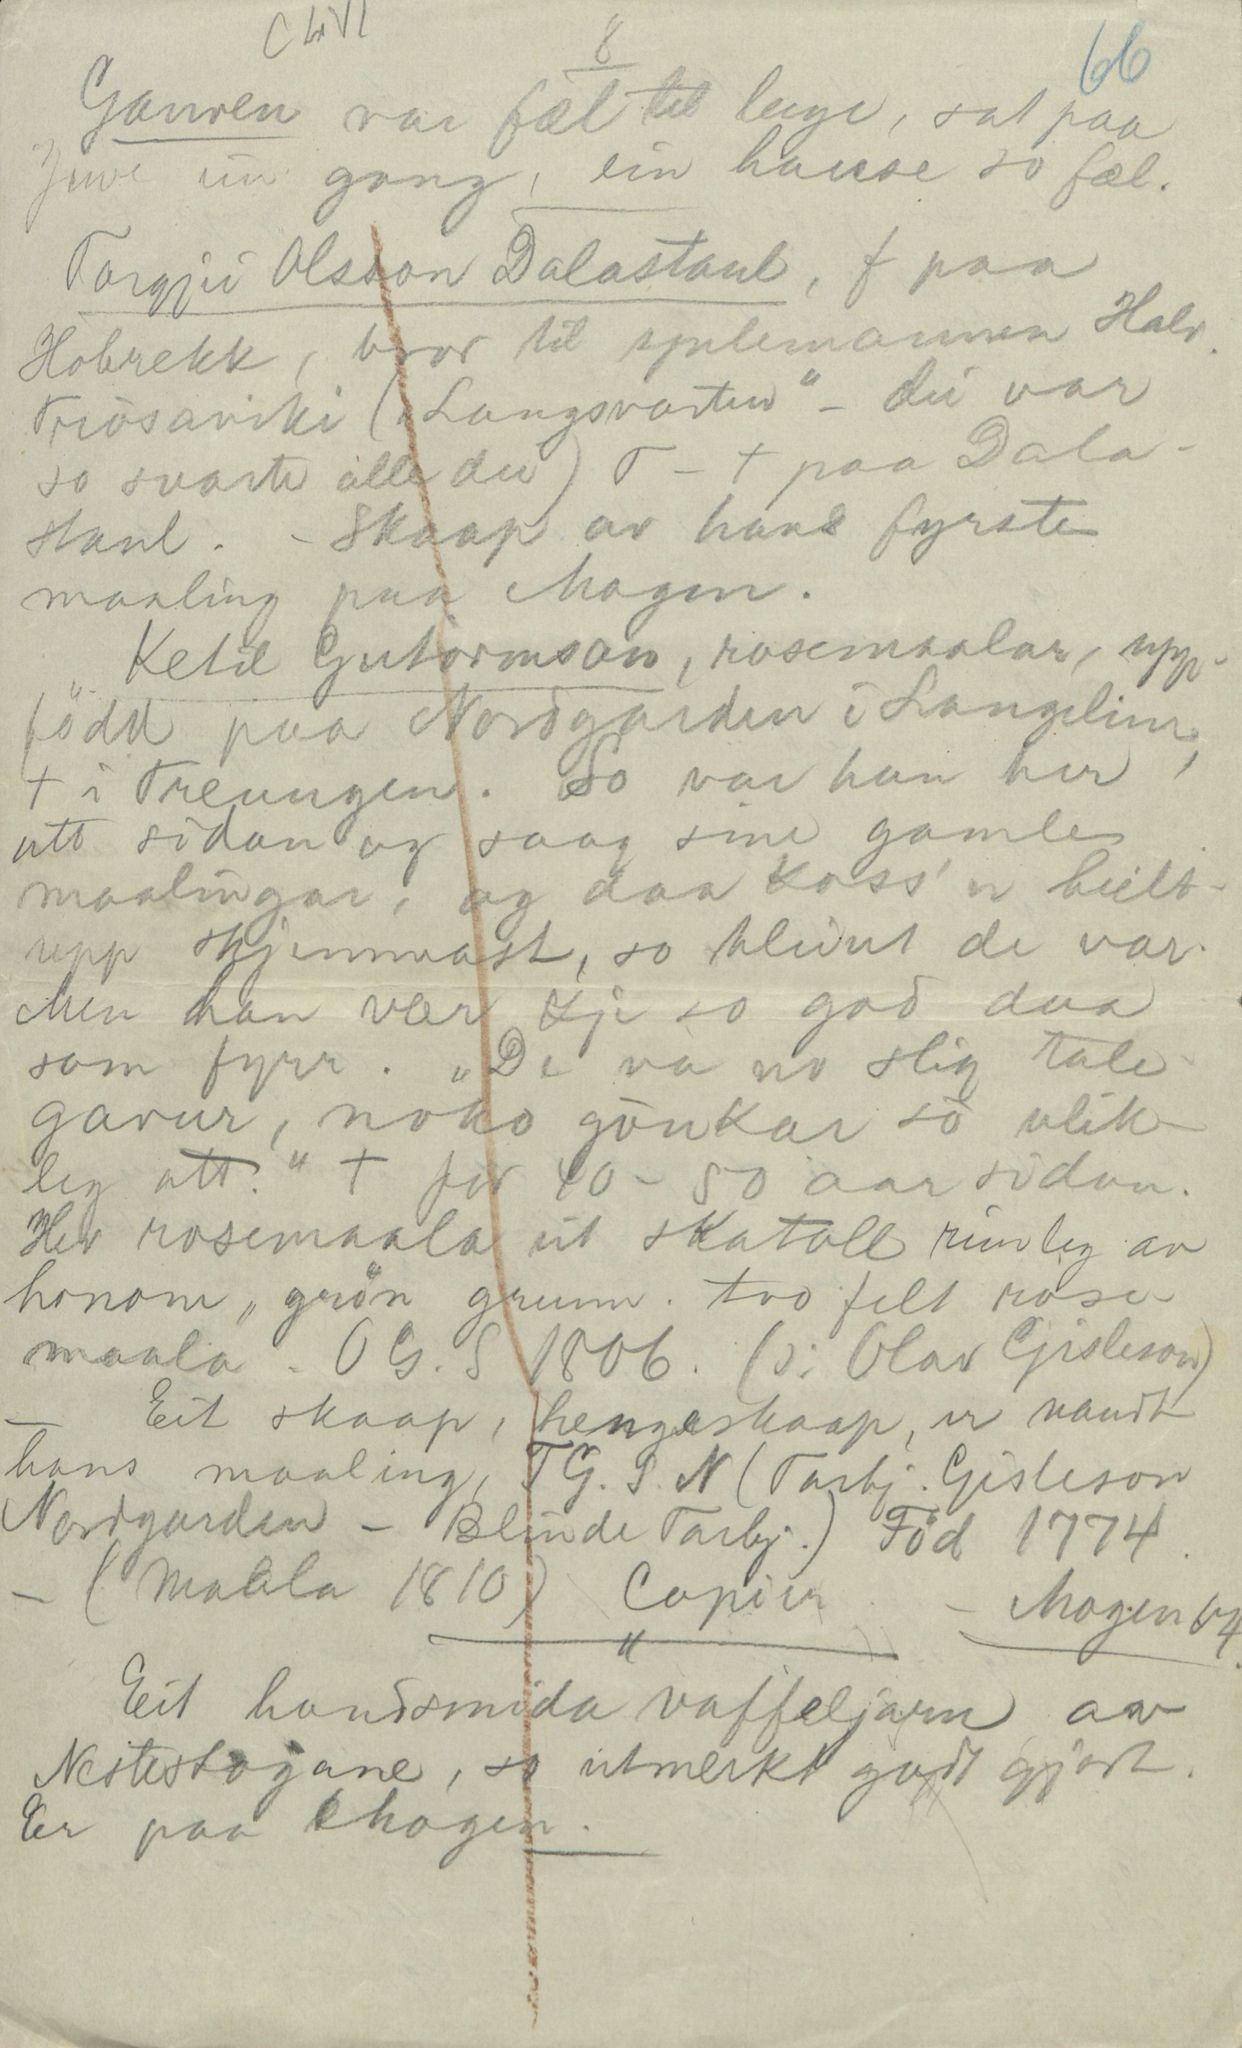 8
66
Garven var fæl til luge, sat paa
Juve ein gong, ein hause so fæl.
Torgjei Olsson Dalastaul, f paa
Hobrekk, bror til spelemannen Halv.
Triosaviki („Langsvarten" - dei var
so svarte alle dei) T - + paa Dala-
staul. - Skaap av hans fyrste
maaling paa Mogen.
Ketil Gutormson, rosemaalar, upp-
född paa Nordgarden i Langelim,
+ i Treungen. So var han her
att sidan og saag sine gamle
maalingar, og daa koss'n heilt
upp skjemmast, so kleint de var.
Men han var kje so god daa
som fyrr. „De va no slig tale
gavur, noko gönkar so ulik-
leg att." + for 40-50 aar sidan.
Her rosemaala eit skatoll rimleg av
honom, grön grunn. tvo felt rose
maala - O G. S 1806. (ɔ: Olav Gisleson)
- Eit skaap, hengeskaap, er vandt
hans maaling, T G. S. N (Tarbj. Gisleson
Nordgarden - Blinde Tarbj.) Föd 1774.
- (Maala 1810) Copier - Mogen 64.
Eit handsmida vaffeljarn av
Nestestogane, so utmerkt godt gjort.
Er paa Mogen.